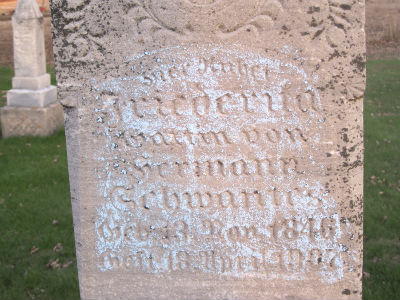 Hier Ruhet
Friederika
Gattin von
Hermann
Schwantes
Geb. 13. Nov. 1846
Gest. 18. April